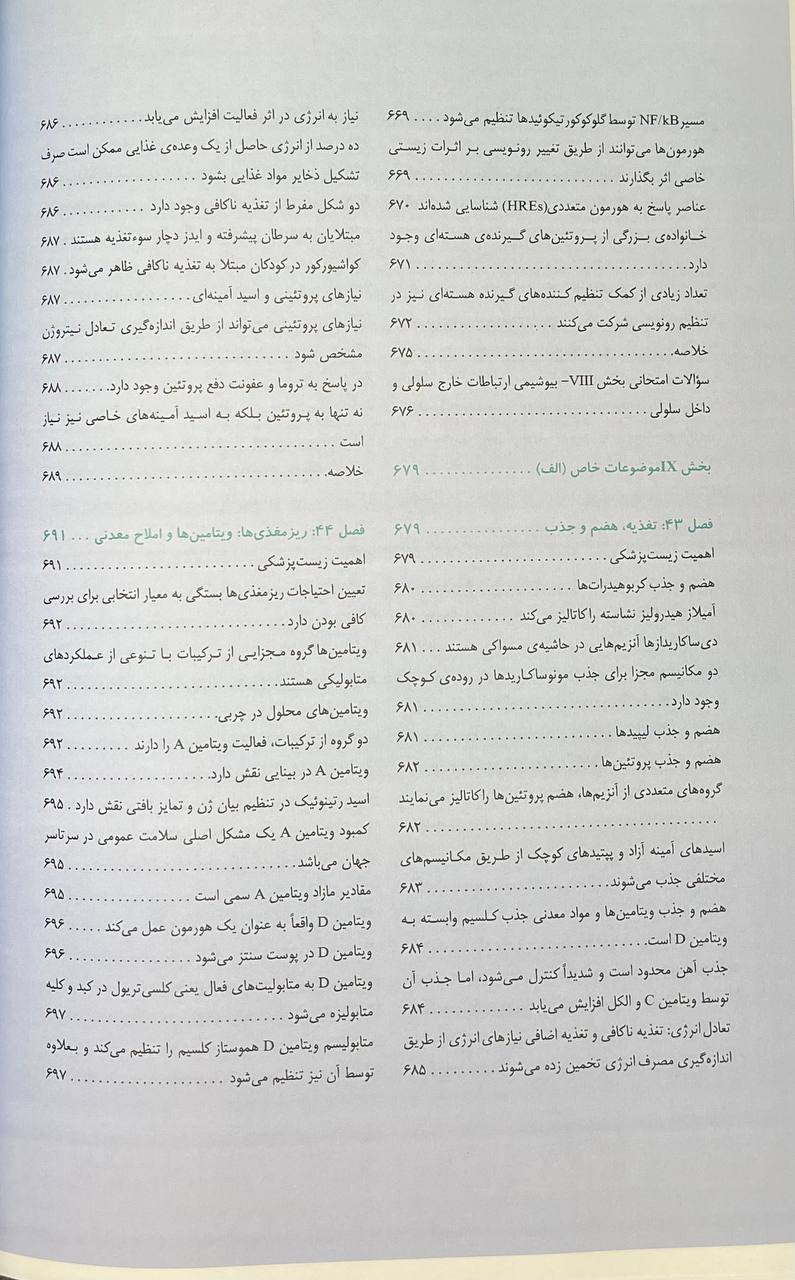 مسیر NF/kB توسط گلوکوکورتیکوئیدها تنظیم می‌شود .... ۶۶۹
هورمون‌ها می‌توانند از طریق تغییر رونویسی بر اثرات زیستی
خاصی اثر بگذارند ............................ ۶۶۹
عناصر پاسخ به هورمون متعددی(HREs) شناسایی شده‌اند ۶۷۰
خانواده‌ی بزرگی از پروتئین‌های گیرنده‌ی هسته‌ای وجود
دارد .................................... ۶۷۱
تعداد زیادی از کمک تنظیم کننده‌های گیرنده هسته‌ای نیز در
تنظیم رونویسی شرکت می‌کنند .................. ۶۷۲
خلاصه .................................. ۶۷۵
سؤالات امتحانی بخش VIII– بیوشیمی ارتباطات خارج سلولی و
داخل سلولی ............................... ۶۷۶
بخش IXموضوعات خاص (الف) .............. ۶۷۹
فصل ۴۳: تغذیه، هضم و جذب ................ ۶۷۹
اهمیت زیست‌پزشکی ......................... ۶۷۹
هضم و جذب کربوهیدرات‌ها .................... ۶۸۰
آمیلاز هیدرولیز نشاسته را کاتالیز می‌کند ............. ۶۸۰
دی‌ساکاریدازها آنزیم‌هایی در حاشیه‌ی مسواکی هستند ... ۶۸۱
دو مکانیسم مجزا برای جذب مونوساکاریدها در روده‌ی کوچک
وجود دارد ................................. ۶۸۱
هضم و جذب لیپیدها ......................... ۶۸۱
هضم و جذب پروتئین‌ها ....................... ۶۸۲
گروه‌های متعددی از آنزیم‌ها، هضم پروتئین‌ها را کاتالیز می‌نمایند
....................................... ۶۸۲
اسیدهای آمینه آزاد و پپتیدهای کوچک از طریق مکانیسم‌های
مختلفی جذب می‌شوند ........................ ۶۸۳
هضم و جذب ویتامین‌ها و مواد معدنی جذب کلسیم وابسته به
ویتامین D است ............................. ۶۸۴
جذب آهن محدود است و شدیداً کنترل می‌شود، اما جذب آن
توسط ویتامین C و الکل افزایش می‌یابد ............. ۶۸۴
تعادل انرژی: تغذیه ناکافی و تغذیه اضافی نیازهای انرژی از طریق
اندازه‌گیری مصرف انرژی تخمین زده می‌شوند ......... ۶۸۵
نیاز به انرژی در اثر فعالیت افزایش می‌یابد ............ ۶۸۶
ده درصد از انرژی حاصل از یک وعده‌ی غذایی ممکن است صرف
تشکیل ذخایر مواد غذایی بشود .................. ۶۸۶
دو شکل مفرط از تغذیه ناکافی وجود دارد ............ ۶۸۶
مبتلایان به سرطان پیشرفته و ایدز دچار سوءتغذیه هستند . ۶۸۷
کواشیورکور در کودکان مبتلا به تغذیه ناکافی ظاهر می‌شود . ۶۸۷
نیازهای پروتئینی و اسید آمینه‌ای ................. ۶۸۷
نیازهای پروتئینی می‌تواند از طریق اندازه‌گیری تعادل نیتروژن
مشخص شود .............................. ۶۸۷
در پاسخ به تروما و عفونت دفع پروتئین وجود دارد ....... ۶۸۸
نه تنها به پروتئین بلکه به اسید آمینه‌های خاصی نیز نیاز
است .................................... ۶۸۸
خلاصه ................................... ۶۸۹
فصل ۴۴: ریزمغذی‌ها: ویتامین‌ها و املاح معدنی ... ۶۹۱
اهمیت زیست‌پزشکی ......................... ۶۹۱
تعیین احتیاجات ریزمغذی‌ها بستگی به معیار انتخابی برای بررسی
کافی بودن دارد ............................. ۶۹۲
ویتامین‌ها گروه مجزایی از ترکیبات با تنوعی از عملکردهای
متابولیکی هستند ........................... ۶۹۲
ویتامین‌های محلول در چربی .................... ۶۹۲
دو گروه از ترکیبات، فعالیت ویتامین A را دارند ......... ۶۹۲
ویتامین A در بینایی نقش دارد .................... ۶۹۴
اسید رتینوئیک در تنظیم بیان ژن و تمایز بافتی نقش دارد . ۶۹۵
کمبود ویتامین A یک مشکل اصلی سلامت عمومی در سرتاسر
جهان می‌باشد .............................. ۶۹۵
مقادیر مازاد ویتامین A سمی است ................ ۶۹۵
ویتامین D واقعاً به عنوان یک هورمون عمل می‌کند ..... ۶۹۶
ویتامین D در پوست سنتز می‌شود ................ ۶۹۶
ویتامین D به متابولیت‌های فعال یعنی کلسی‌تریول در کبد و کلیه
متابولیزه می‌شود ........................... ۶۹۷
متابولیسم ویتامین D هموستاز کلسیم را تنظیم می‌کند و بعلاوه
توسط آن نیز تنظیم می‌شود ..................... ۶۹۷